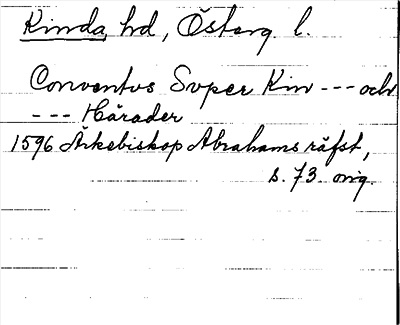 Kinda hd, Österg. l.
Conventus Super Kin --- och
--- Härader
1596 Ärkebiskop Abrahams räfst,
s. 73 orig.